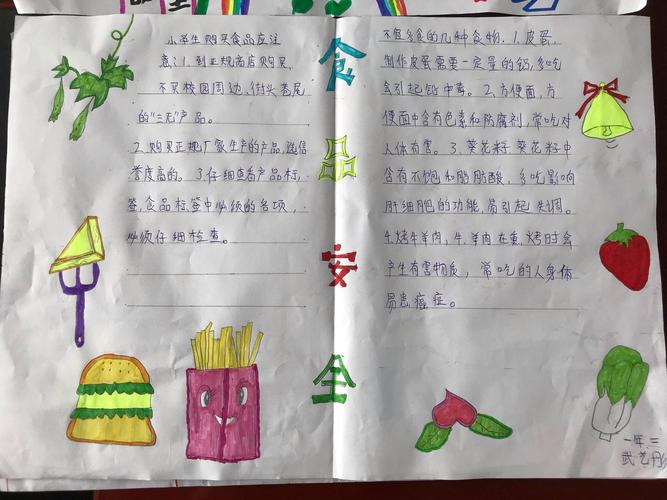 小学生购买食品应注
意：1.到正规商店购买，
不买校园周边、街头巷尾
的“三无”产品。
2.购买正规厂家生产的产品，选信
誉度高的。3.仔细查看产品标
签，食品标签中必须的各项，
必须仔细检查。
食
品
安
全
不宜多食的几种食物.1.皮蛋，
制作皮蛋需要一定量的钙，多吃
会引起铅中毒。2.方便面，方
便面中含有色素和防腐剂，常吃对
人体有害。3.葵花籽，葵花籽中
含有不饱和脂肪酸，多吃影响
肝细胞的功能，易引起失调。
4.烤牛羊肉，牛、羊肉在熏烤时会
产生有害物质，常吃的人身体
易患癌症。
一年.三
武艺丹